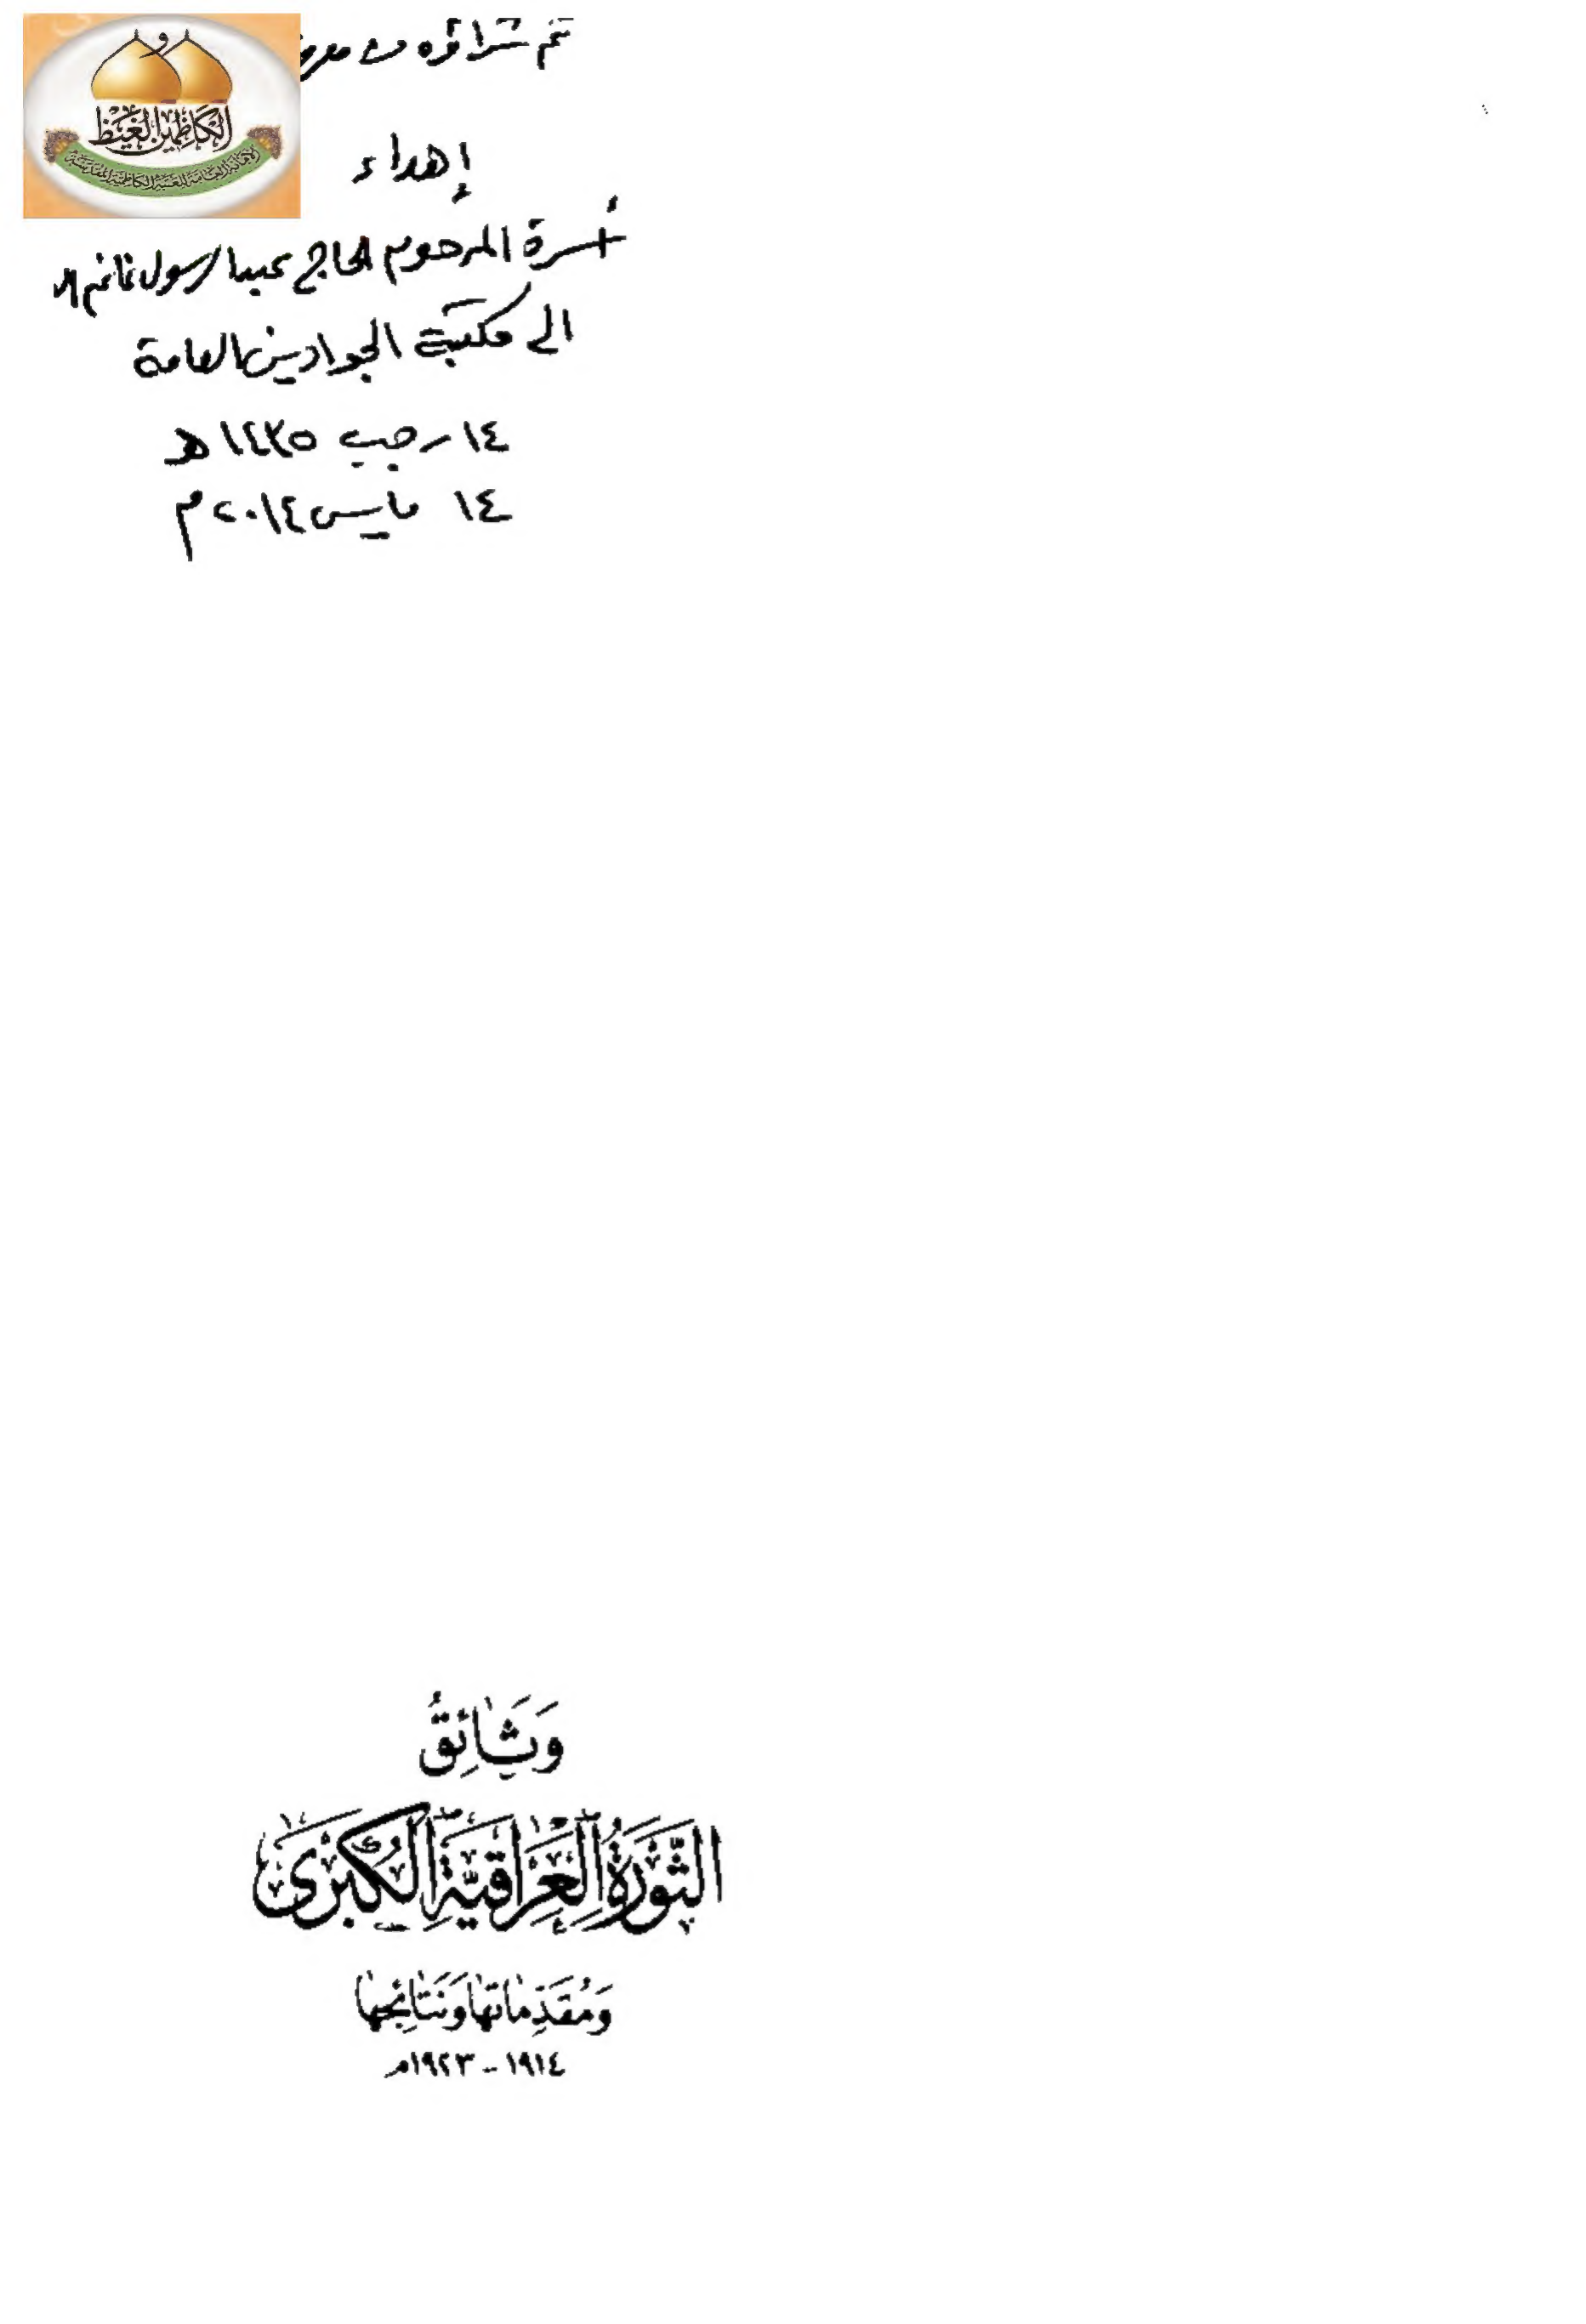 تم شراؤه من
والكاظمين الغيظ
الأمانة العامة للعتبة الكاظمية المقدسة
إهداء
أسرة المرحوم الحاج عبد الرسول غانم
الى مكتبة الجوادين العامة
١٤ رجب ١٤٣٥ هـ
١٤ مايس ٢٠١٤ م
وَثَائِقُ
الثَّوْرَةِ الْعِرَاقِيَّةِ الْكُبْرَىٰ
وَمُقَدِّمَاتِهَا وَنَتَائِجِهَا
١٩١٤ - ١٩٢٣م